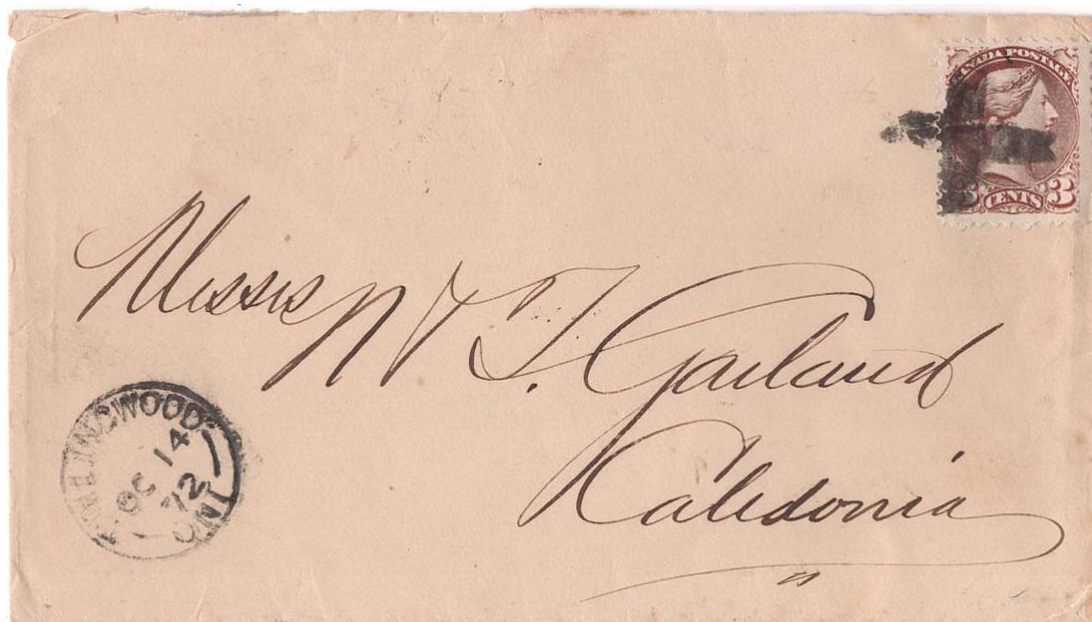 CANADA POSTAGE
3 CENTS 3
Messrs N & T. Garland
Caledonia
COLLINGWOOD
OC 14
72
ONT